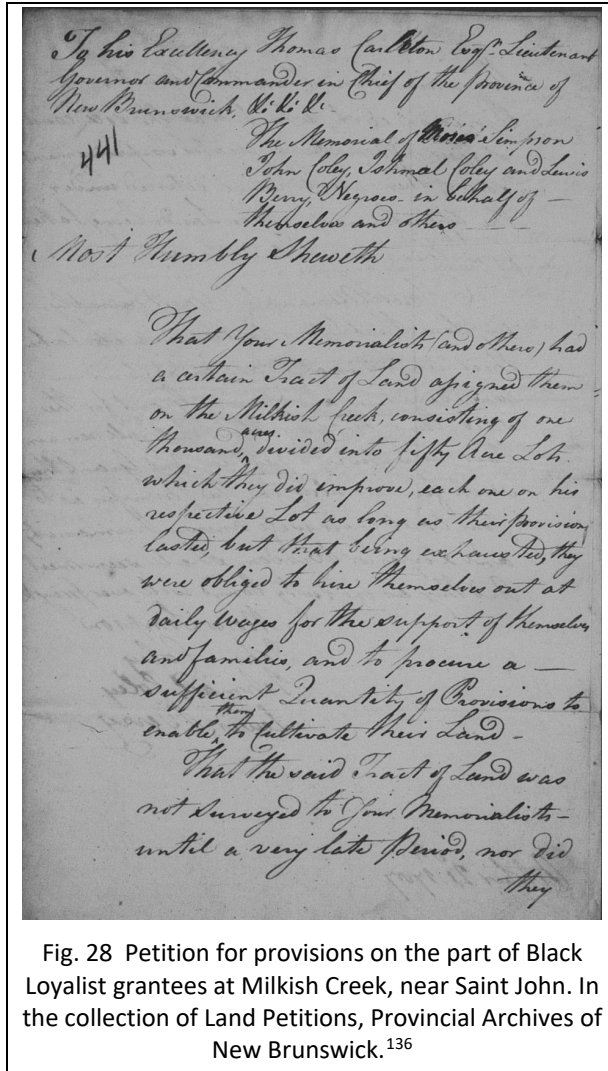 To his Excellency Thomas Carleton Esqr. Lieutenant
Governor and Commander in Chief of the province of
New Brunswick, &c &c &c
441
The Memorial of Moses Simpson
John Coley, Ishmael Coley and Lewis
Berry, Negroes in behalf of —
themselves and others
Most Humbly Sheweth
That Your Memorialists (and others) had
a certain Tract of Land assigned them
on the Milkish Creek, consisting of one
thousand acres, divided into fifty Acre Lots.
which they did improve, each one on his
respective Lot as long as their provisions
lasted, but that being exhausted, they
were obliged to hire themselves out at
daily wages for the support of themselves
and families, and to procure a —
sufficient Quantity of Provisions to
enable them to Cultivate their Land —
That the said Tract of Land was
not surveyed to Your Memorialists —
until a very late Period, nor did
they
Fig. 28 Petition for provisions on the part of Black
Loyalist grantees at Milkish Creek, near Saint John. In
the collection of Land Petitions, Provincial Archives of
New Brunswick.136